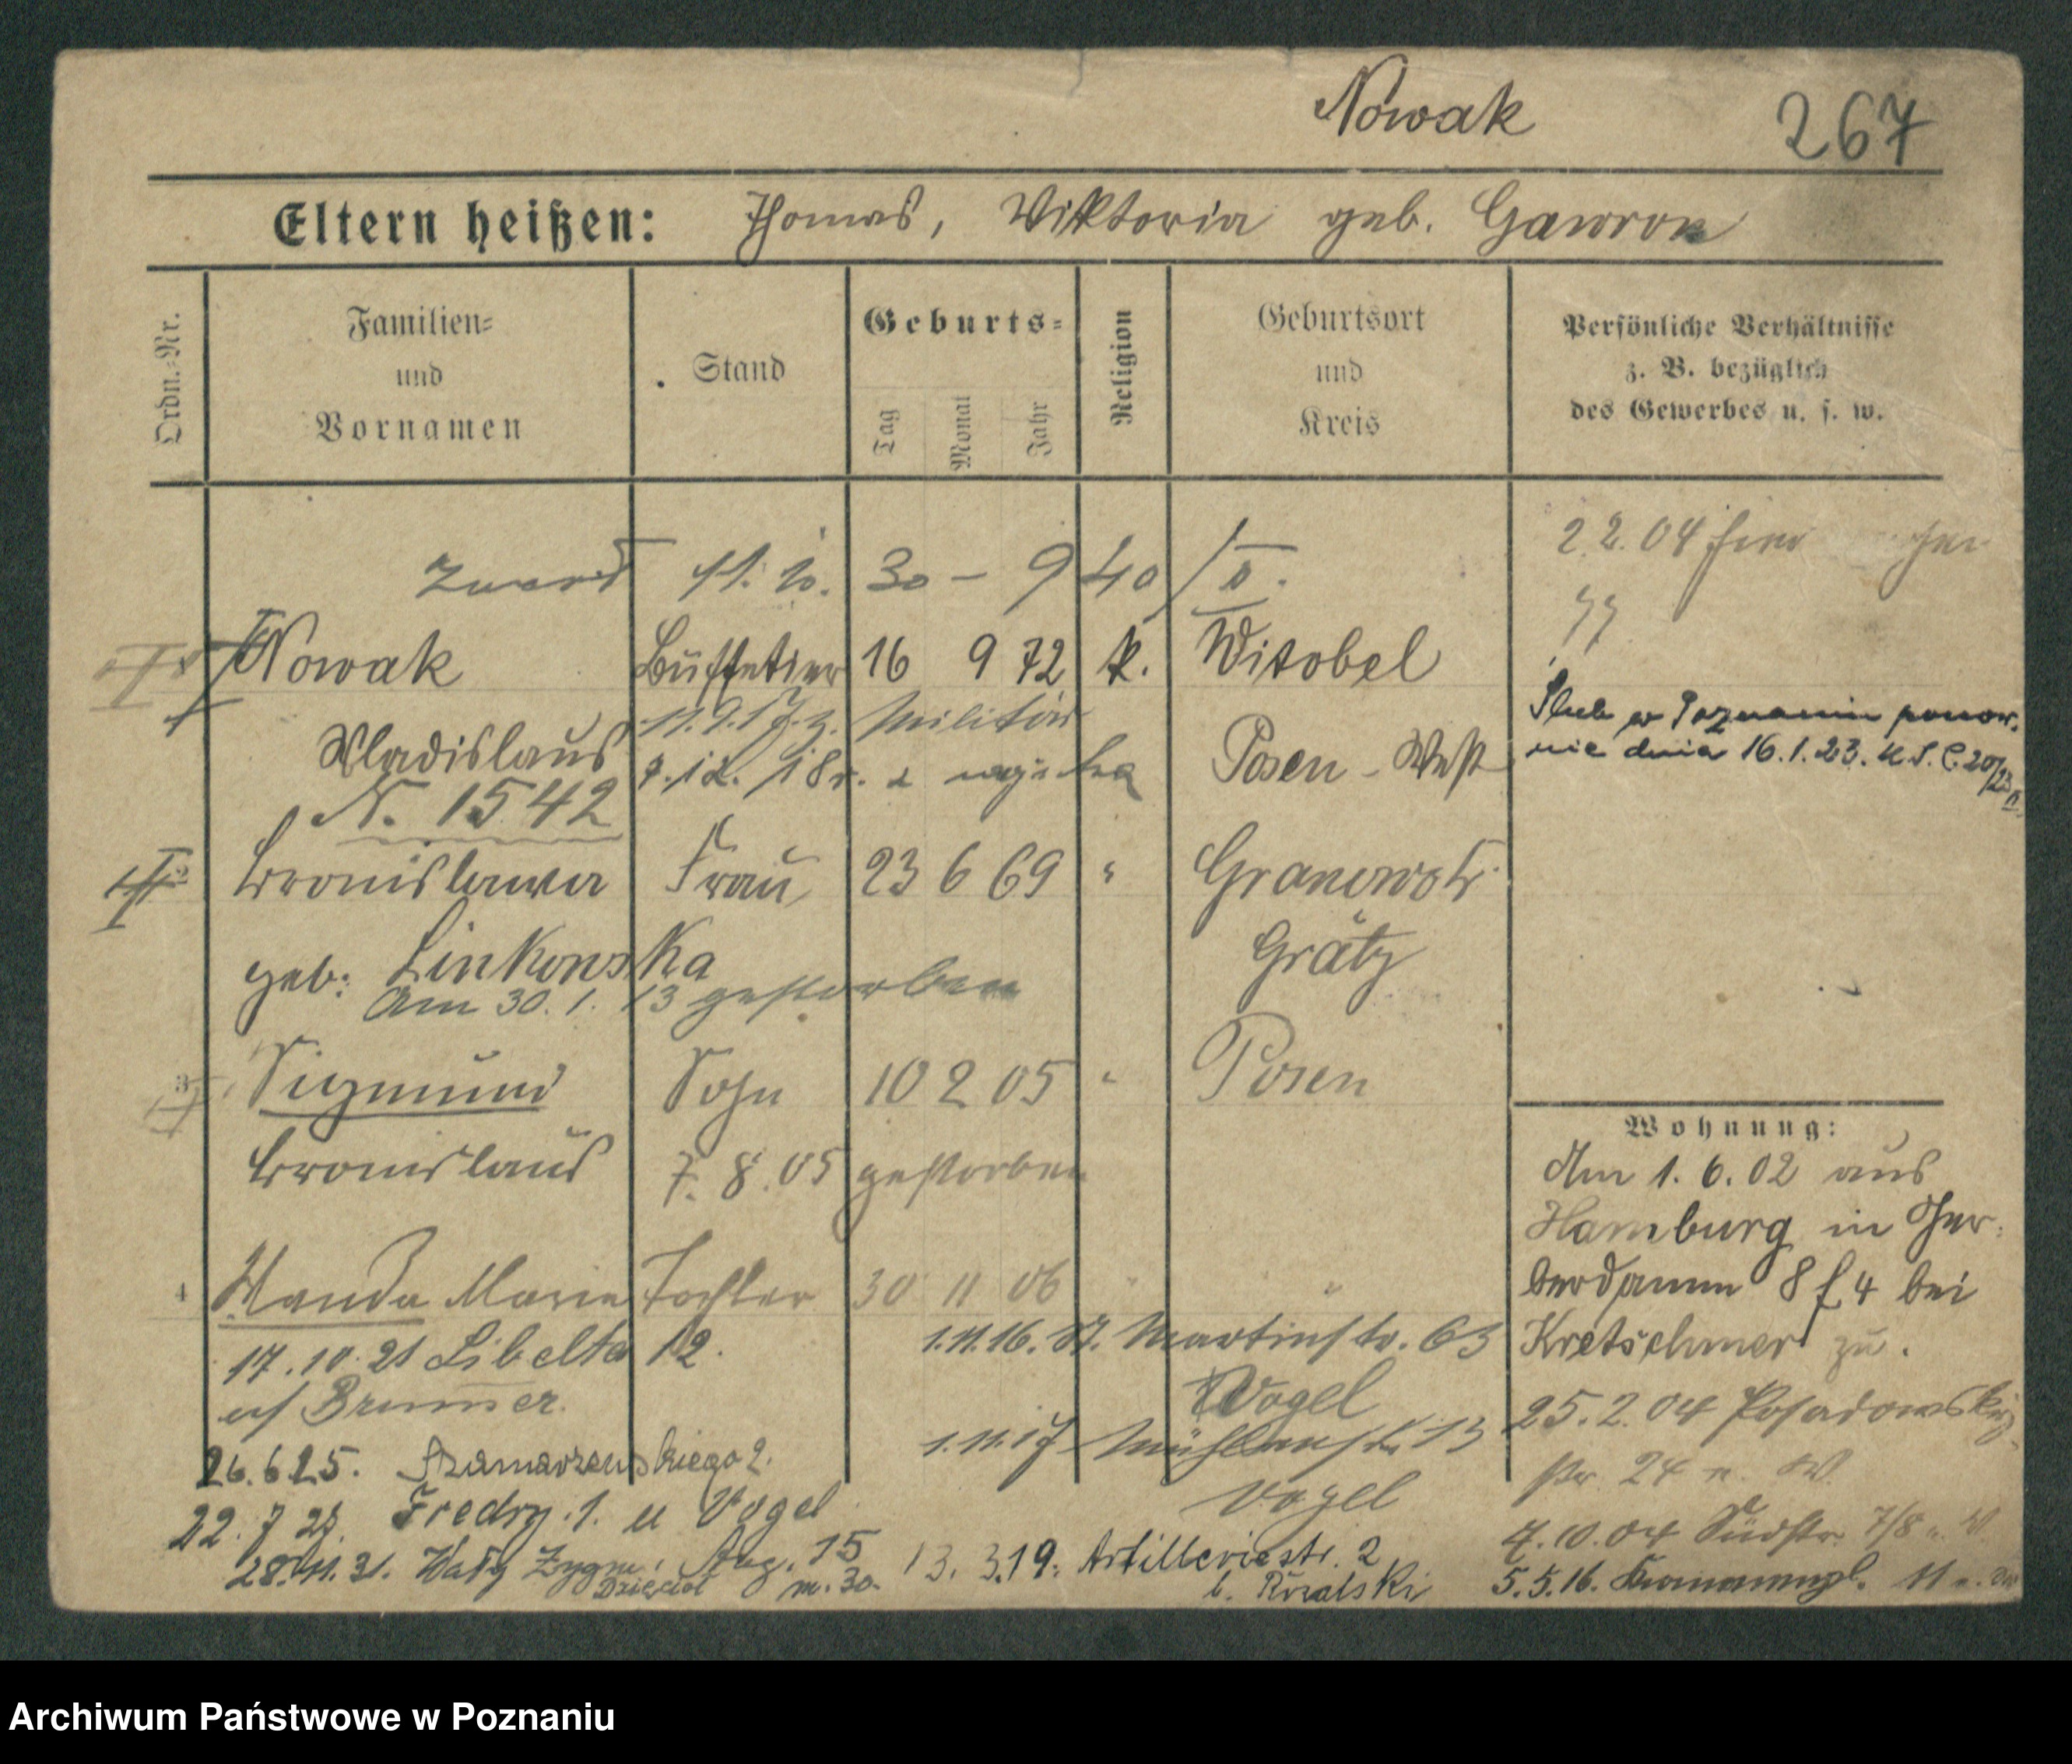 Nowak 267
Eltern heißen: Thomas, Viktoria geb. Gawron
Ordn.-Nr.
Familien-
und
Vornamen
Stand
Geburts-
Tag
Monat
Jahr
Religion
Geburtsort
und
Kreis
Persönliche Verhältnisse
z. B. bezüglich
des Gewerbes u. s. w.
30 - 9 40
2.2.04
Nowak Buffetier 16 9 72 k. Witobel
11.9.17. z. Militär
Wladislaus Posen-West
9.12.18 r. z wojska
N. 1542
Ślub w Poznaniu ponow.
nie dnia 16.1.23. U.S.C. 20/23
Bronislawa Frau 23 6 69 "
Grätz
geb: Linkowska
Am 30.1.13 gestorben
3 Sigmund Sohn 10 2 05 " Posen
Bronislaus 7.8.05 gestorben
4 Wanda Marie Tochter 30 11 06 " "
Wohnung:
Am 1.6.02 aus
Hamburg in Ger-
berdamm 8 f 4 bei
Kretschmer zu.
25.2.04 Posadowsky
str. 24 n. W.
4.10.04 Südstr. 7/8 n. W.
5.5.16. 11
1.11.16. St. Martinstr. 63
Vogel
1.11.17 Mühlenstr. 13
Vogel
13.3.19. Artilleriestr. 2
b. Rózalski
17.10.21 Libelta 12.
u/ Brunner.
26.6.25. Szamarzewskiego 2.
22.7.27. Fredry. 1. u Vogel
28.11.31. Wały Zygm. Aug. 15
Dzięcioł m. 30.
Archiwum Państwowe w Poznaniu